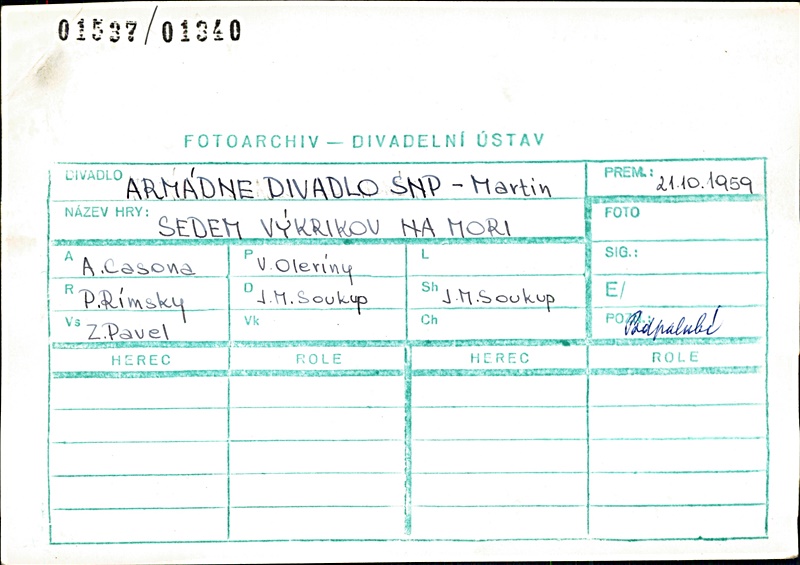 01537/01340
FOTOARCHIV — DIVADELNÍ ÚSTAV
DIVADLO ARMÁDNE DIVADLO SNP - Martin PREM.: 21.10.1959
NÁZEV HRY: SEDEM VÝKRIKOV NA MORI FOTO
A A.Casona P V.Oleríny L SIG.:
R P.Rímsky D J.M.Soukup Sh J.M.Soukup E/
Vs Z.Pavel Vk Ch POZN. Podpalubí
HEREC ROLE HEREC ROLE